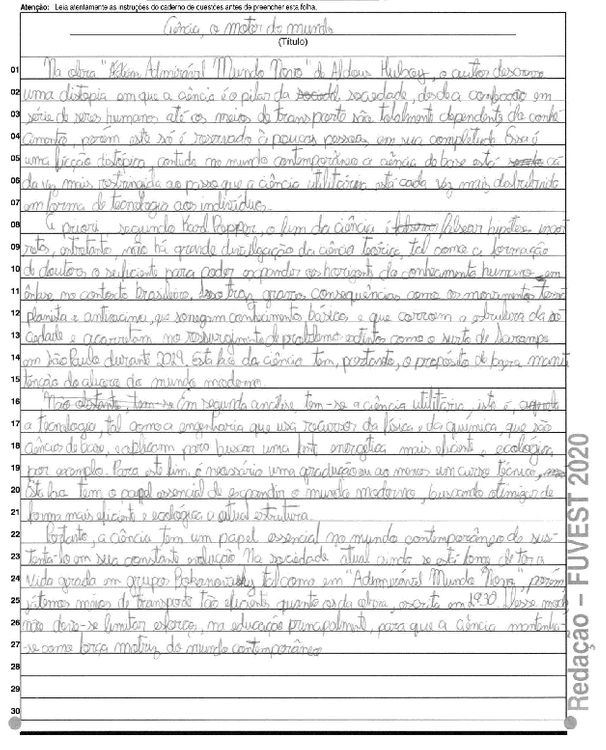 Atenção: Leia atentamente as instruções do caderno de questões antes de preencher esta folha.
Ciência, o motor do mundo
(Título)
01 Na obra "Admirável Mundo Novo" de Aldous Huxley, o autor descreve
02 uma distopia em que a ciência é o pilar da sociedade, desde a confecção em
03 série de seres humanos até os meios de transporte são totalmente dependente da conhe-
04 cimento, porém este só é reservado à poucas pessoas em sua completude. Essa é
05 uma ficção distópica, contudo no mundo contemporâneo a ciência de base está ca-
06 da vez mais restringida ao passo que a ciência utilitária está cada vez mais distribuida
07 em forma de tecnologia aos indivíduos.
08 A priori, segundo Karl Popper, o fim da ciência é falsear hipóteses incor-
09 retas, entretanto não há grande divulgação da ciência teórica, tal como a formação
10 de doutores o suficiente para poder expandir os horizontes do conhecimento humano, em
11 ênfase no contexto brasileiro. Isso traz graves consequências como os movimentos terra
12 planista e antivacina, que sonegam conhecimento básico e que corroem a estrutura da so-
13 ciedade e acarretam no ressurgimento de problemas extintos como o surto de Sarampo
14 em São Paulo durante 2019. Esta face da ciência tem, portanto, o propósito de fazer manu-
15 tenção do alicerce do mundo moderno.
16 Não obstante, tem-se Em segunda análise, tem-se a ciência utilitária, isto é,
17 a tecnologia, tal como a engenharia que usa recursos da física e da química, que são
18 ciências de base, e aplicam para buscar uma fonte energética mais eficiente e ecológica
19 por exemplo. Para este fim, é necessário uma graduação ou ao menos um curso técnico,
20 Esta face tem o papel essencial de expandir o mundo moderno, buscando otimizar de
21 forma mais eficiente e ecológica a atual estrutura.
22 Portanto, a ciência tem um papel essencial no mundo contemporâneo de sus-
23 tentá-lo em sua constante evolução. Na sociedade atual ainda se está longe de ter a
24 vida gerada em grupos Bokanovsky tal como em "Admirável Mundo Novo", porém
25 já temos meios de transporte tão eficiente quanto os da obra, escrita em 1930. Desse modo
26 não deve-se limitar esforços, na educação principalmente, para que a ciência mantenha-
27 -se como força motriz do mundo contemporâneo.
28
29
30
Redação – FUVEST 2020